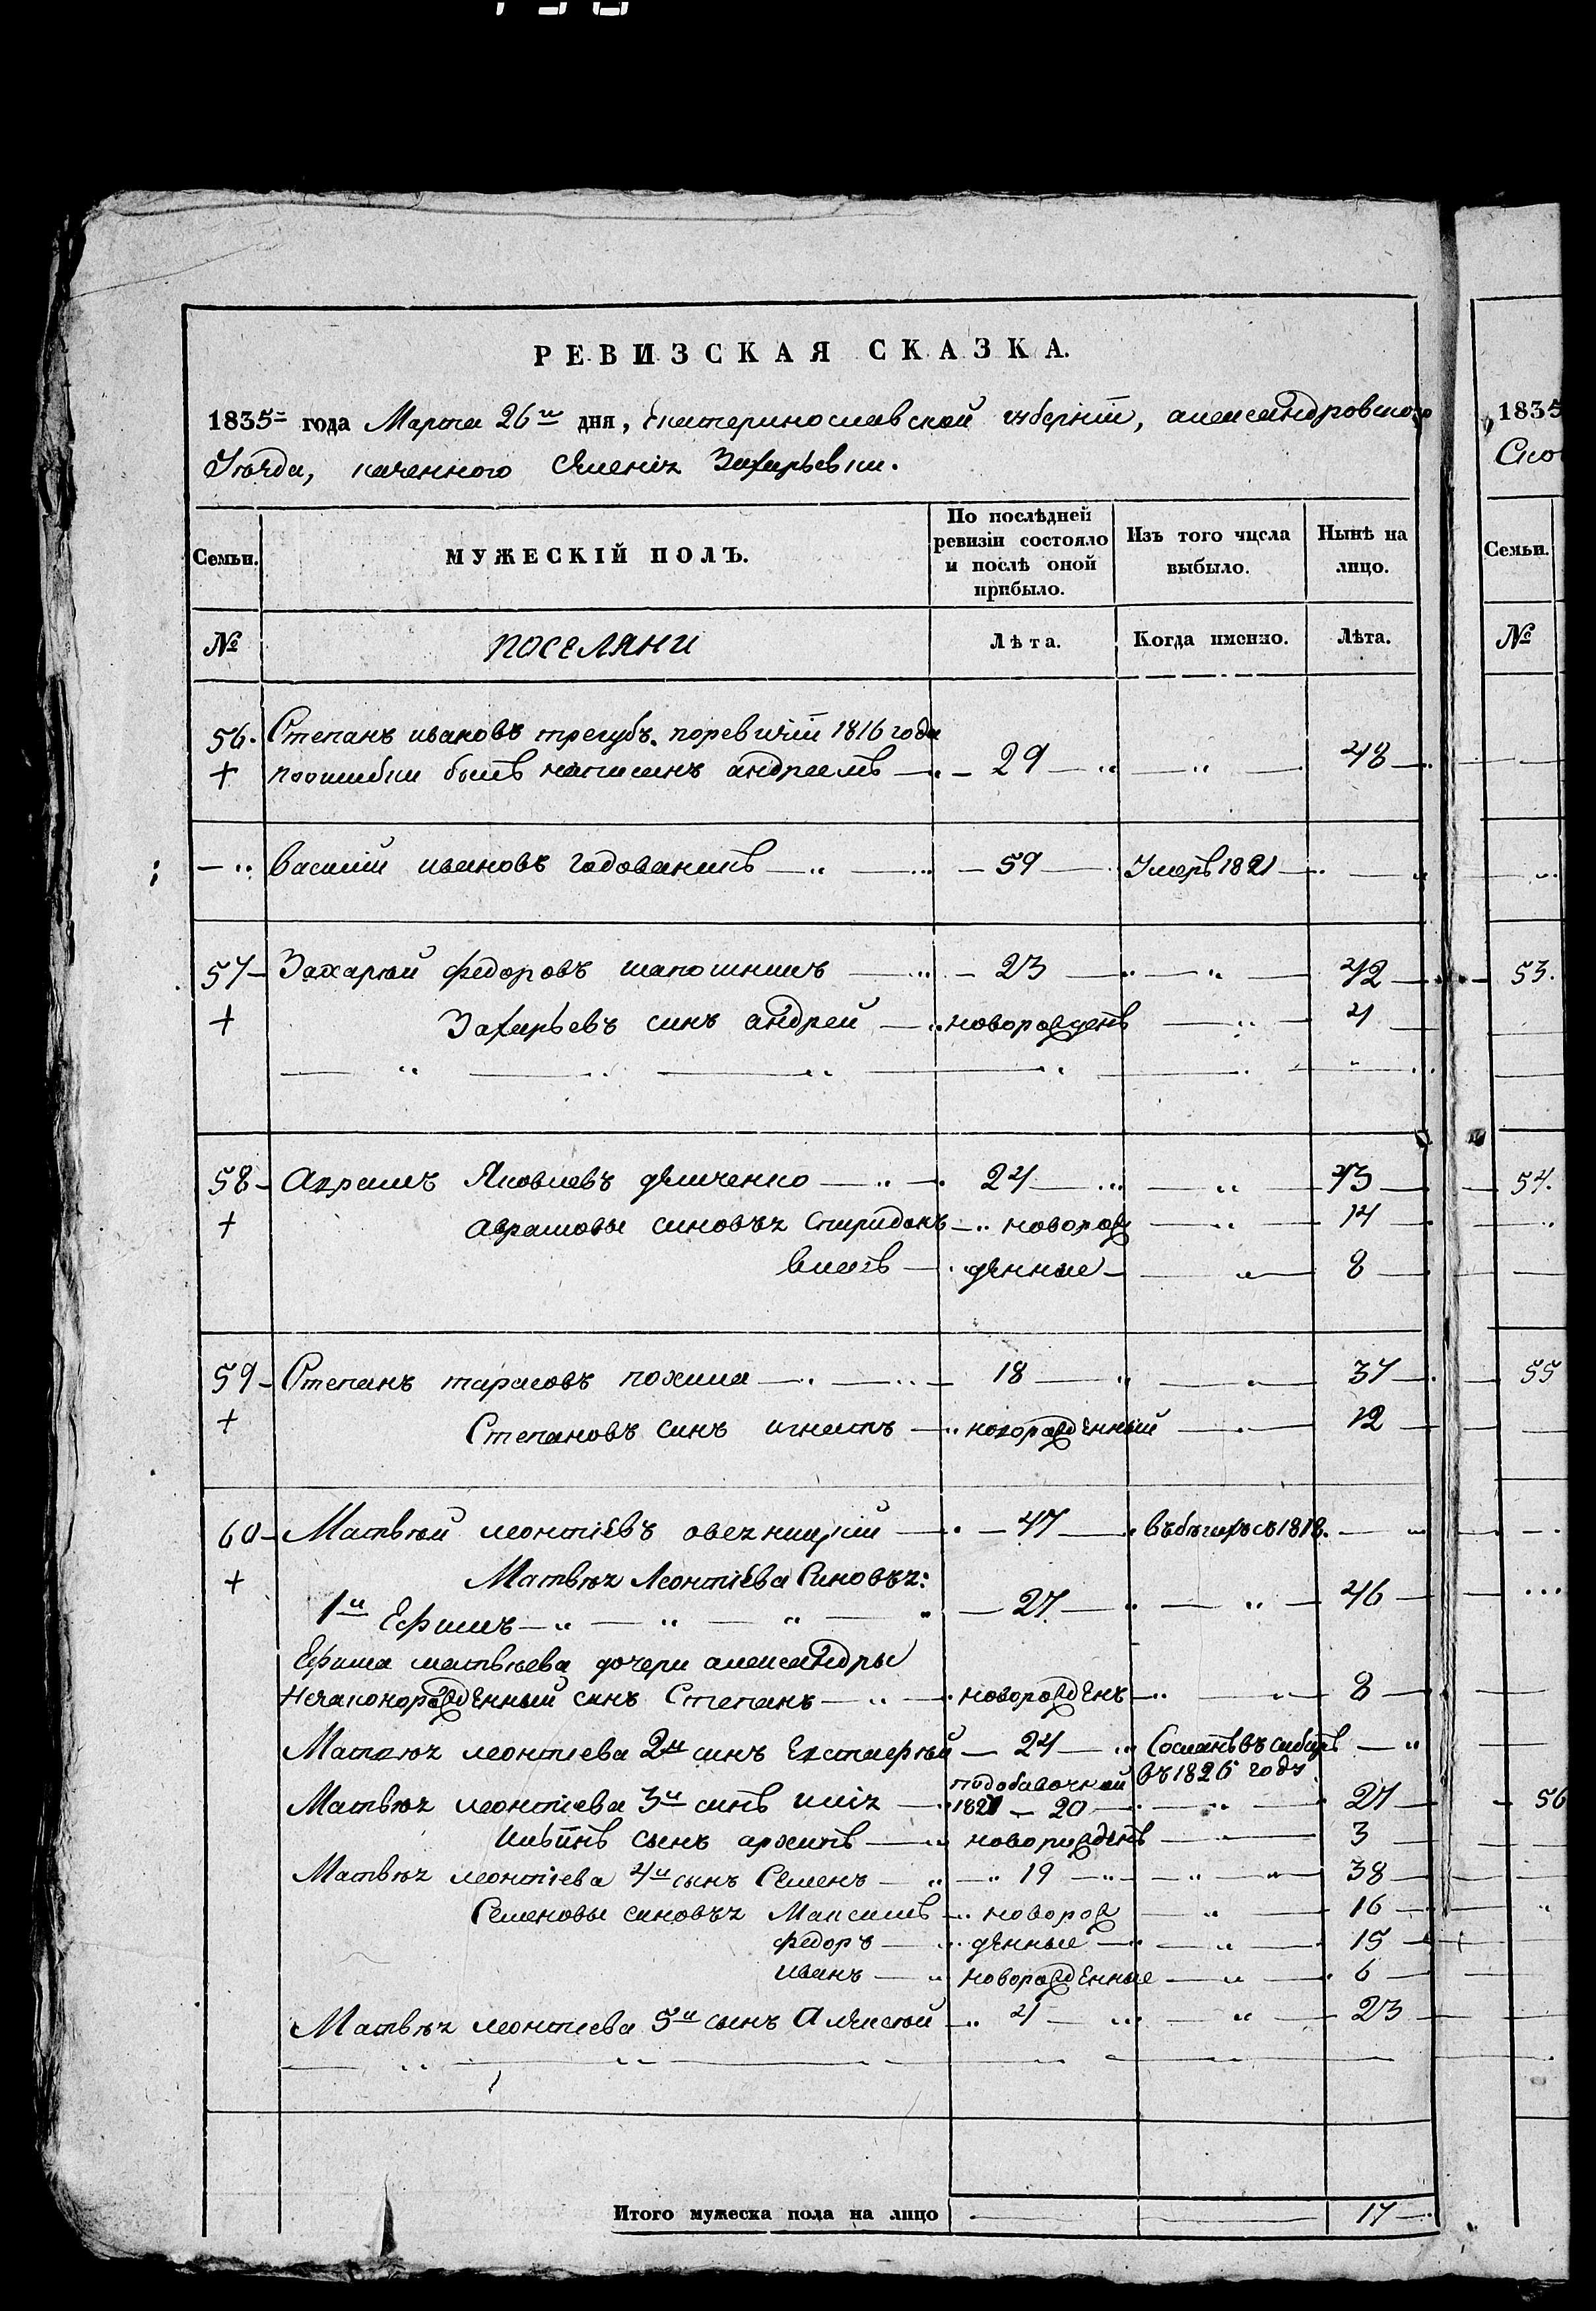 РЕВИЗСКАЯ СКАЗКА.
1835= года Марта 26го дня, Екатеринославской губернїи, александровского
Уѣзда, казенного Селенія Захарьевки.
Семьи.
МУЖЕСКІЙ ПОЛЪ.
По послѣдней ревизіи состояло и послѣ оной прибыло.
Изъ того числа выбыло.
Нынѣ на лицо.
№
ПОСЕЛЯНИ
Лѣта.
Когда именно.
Лѣта.
56. Степанъ ивановъ трегубъ. поревизїи 1816 года
+ поошибки былъ написанъ андреемъ — 29 — 48
Василий ивановъ годованикъ — 59 — Умеръ 1821
57 Захарїй федоровъ шапошникъ — 23 — 42
+ Захарьевъ синъ андрей — новорожденъ — 4
58 Аврамъ Яковлевъ демченко — 24 — 43
+ Аврамовы синовья Спиридонъ — новорож — 14
Власъ — денные — 8
59 Степанъ тарасовъ похила — 18 — 37
+ Степановъ синъ игнатъ — новорожденный — 12
60 Матвѣй леонтїевъ — 47 — въбѣгахъ съ 1818.
+ Матвѣя Леонтїева Синовья:
1й Ефимъ — 27 — 46
Ефима матвѣева дочери александры
Незаконорожденный синъ Степанъ — новорожденъ — 8
Матвѣя леонтїева 2й синъ — 24 — Сосланъ въ сибирь
въ 1826 годѣ
Матвѣя леонтїева 3й синъ илїя — подобавочной
1821 — 20 — 27
Ильинъ сынъ архипъ — новорожденъ — 3
Матвѣя леонтїева 4й сынъ Семенъ — 19 — 38
Семеновы синовья Максимъ — новорож — 16
федоръ — денные — 15
иванъ — новорожденные — 6
Матвѣя леонтїева 5й сынъ Алексѣй — 4 — 23
Итого мужеска пола на лицо — 17
1835
Семьи.
№
53.
54.
55
56